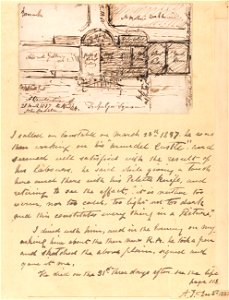 Trafalgar Square
I called on Constable on March 28th 1837. he was
then working on his "Arundel Castle" and
seemed well satisfied with the result of
his labours, he said while giving a touch
here and there with his Palette Knife, and
retiring to see the effect, "it is neither too
warm, nor too cold, too light nor too dark
and this constitutes every thing in a Picture".
I dined with him, and in the evening on my
asking him about the then new R.A. he took a pen
and sketched the above plan, signed with
He died on the 31st three days after see his life
page 118